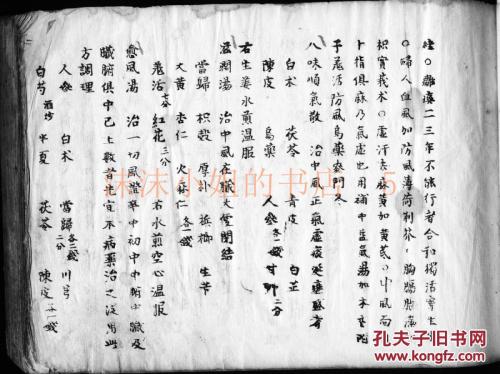 癱〇難療二三年不能行者合和獨活寄生
〇婦人血風加防風薄荷荊芥〇胸膈脹滿
枳實莪朮〇虛汗去麻黃加黃芪〇中風而
卜指俱麻乃氣虛也用補中益氣湯加木香附
子羌活防風烏藥麥門冬
八味順氣散 治中風正氣虛痰延壅盛者
白朮 茯苓 青皮 白芷
陳皮 烏藥 人參各一錢 甘草二分
右生姜水煎溫服
滋潤湯 治中風入臟大便閉結
當歸 枳殼 厚朴 梹榔 生芐
大黃 杏仁 火麻仁各一錢
羌活七分 紅花三分 右水煎空心溫服
愈風湯 治一切風證卒中初中中腑中臟及
臟腑俱中已上數者先宜不病藥治之後用此
方調理
人參 白朮 當歸各二錢二分 川芎
白芍酒炒 半夏 茯苓 陳皮各一錢
沫沫小姐的书店 5
孔夫子旧书网
www.kongfz.com